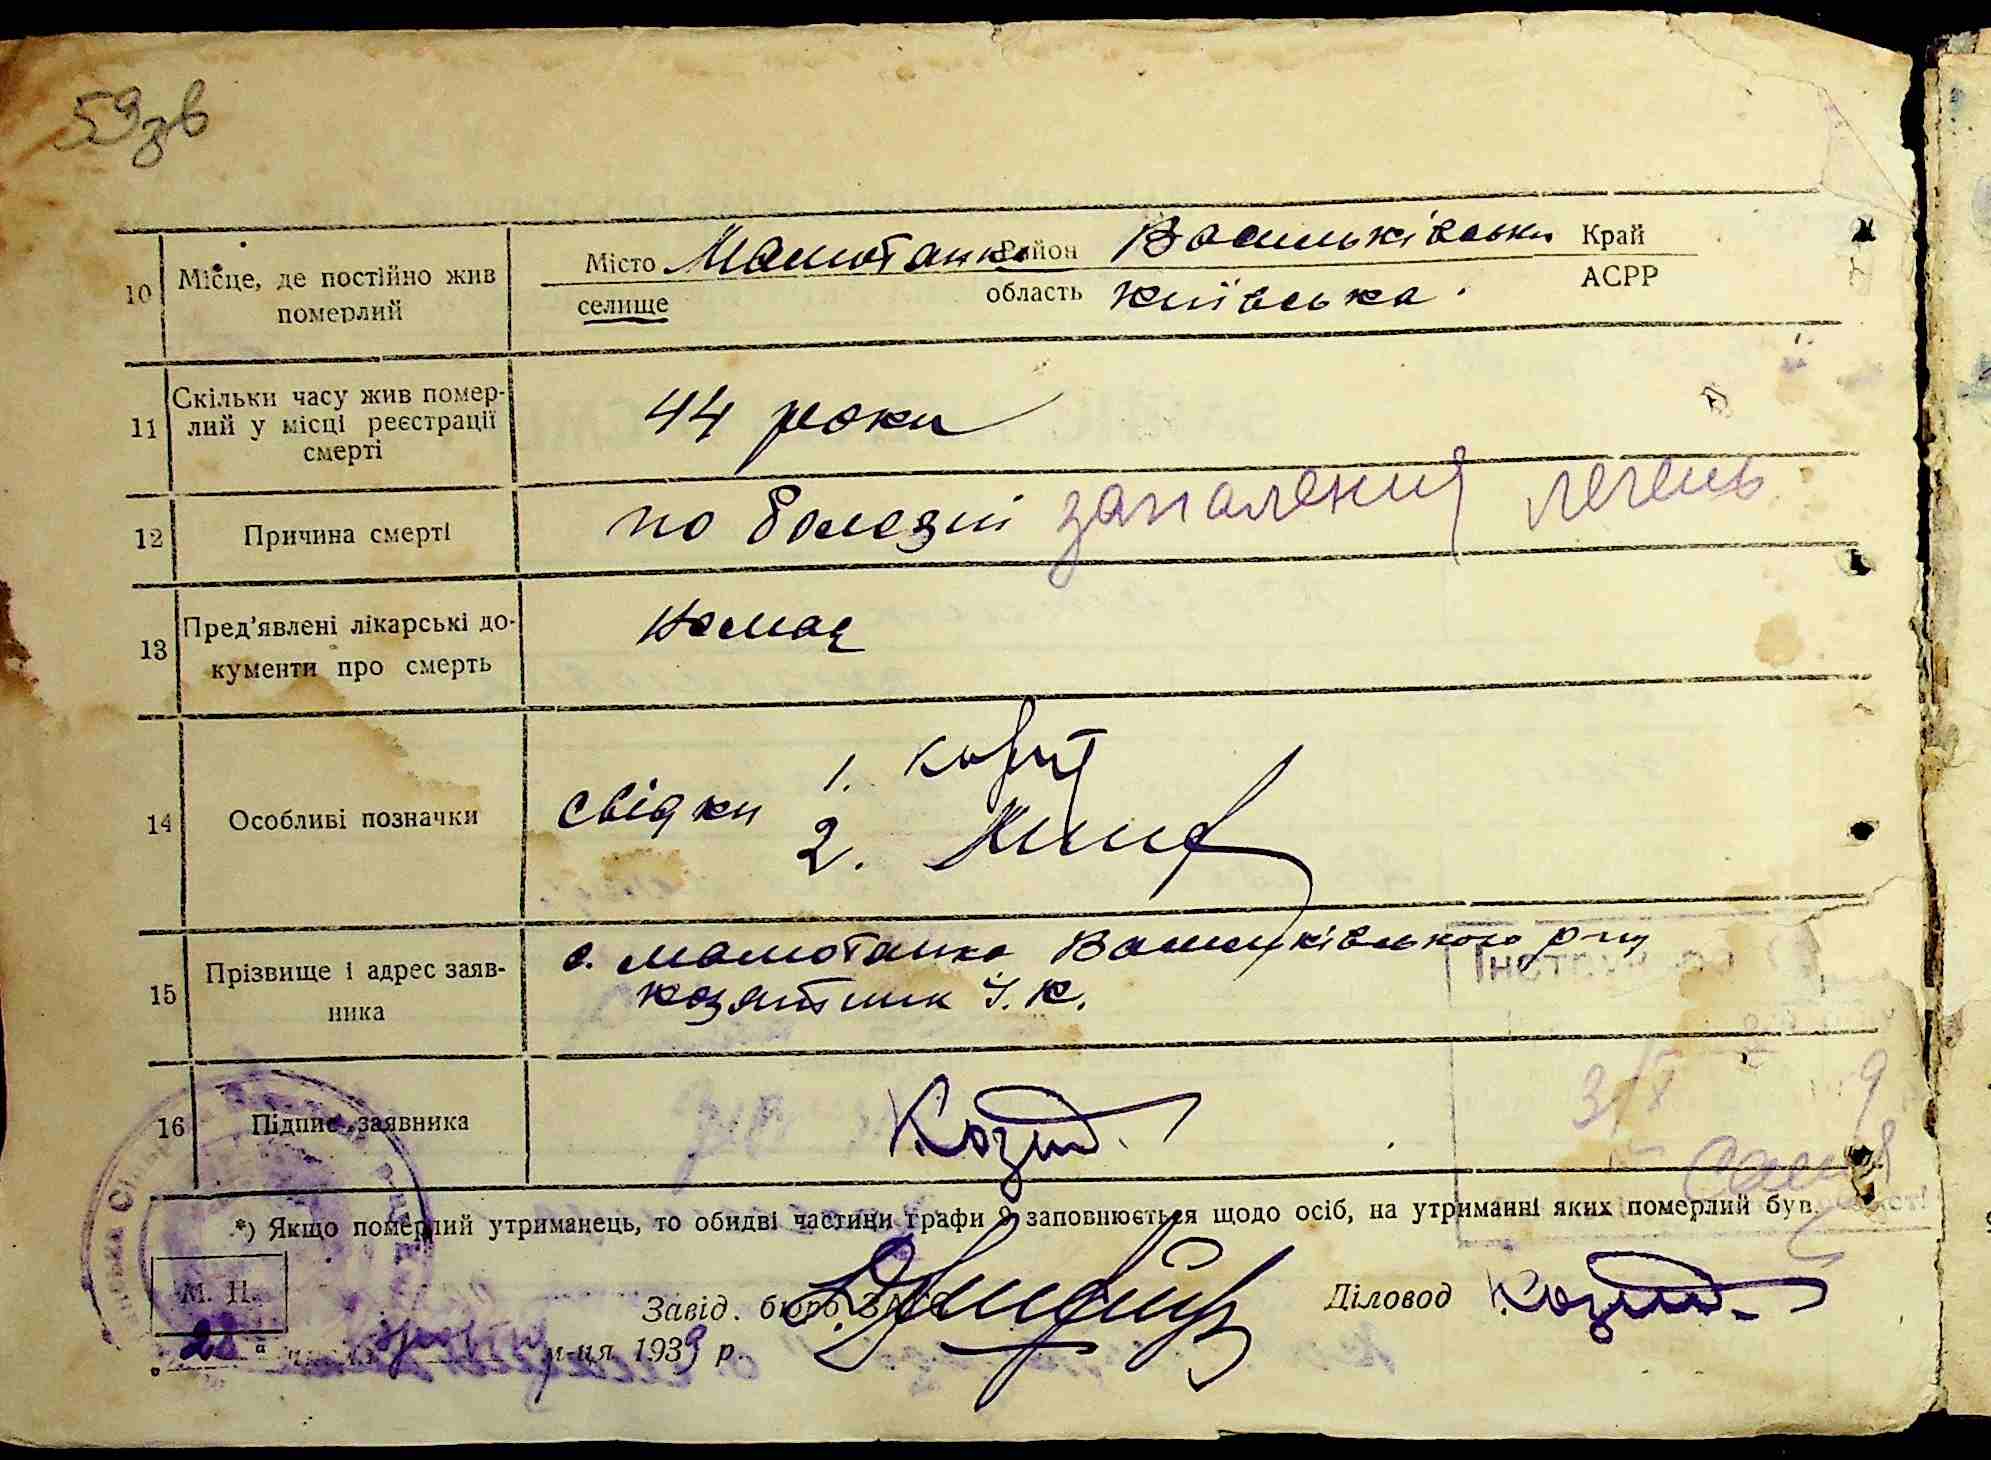 59зв
10 Місце, де постійно жив померлий
Місто Мамотанка Район Васильківськи Край
селище область київська. АСРР
11 Скільки часу жив помер-
лий у місці реєстрації
смерті
44 роки
12 Причина смерті
по болезні запаления легень
13 Пред'явлені лікарські до-
кументи про смерть
немає
14 Особливі позначки
свідки 1.
2.
15 Прізвище і адрес заяв-
ника
с. Мамотанка Васильківського р-ну
козятник У. К.
16 Підпис заявника
*) Якщо померлий утриманець, то обидві частини графи 9 заповнюється щодо осіб, на утриманні яких померлий був.
М. П.
Завід. бюро ЗАГС Діловод
м-ця 1939 р.